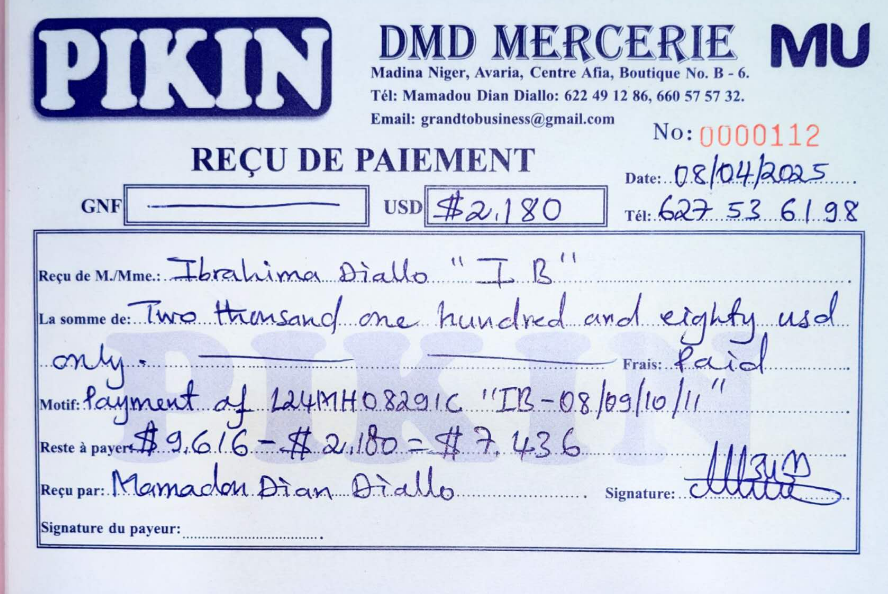 PIKIN
DMD MERCERIE
MU
Madina Niger, Avaria, Centre Afia, Boutique No. B - 6.
Tél: Mamadou Dian Diallo: 622 49 12 86, 660 57 57 32.
Email: grandtobusiness@gmail.com
No: 0000112
REÇU DE PAIEMENT
Date: 08/04/2025
GNF
USD $2.180
Tél: 627 53 61 98
Reçu de M./Mme.: Ibrahima Diallo "I B"
La somme de: Two thousand one hundred and eighty usd
only. Frais: Paid
Motif: Payment of L24MH08291C "IB-08/09/10/11"
Reste à payer $9.616 - $2.180 = $7.436
Reçu par: Mamadou Dian Diallo Signature:
Signature du payeur:
PIKIN